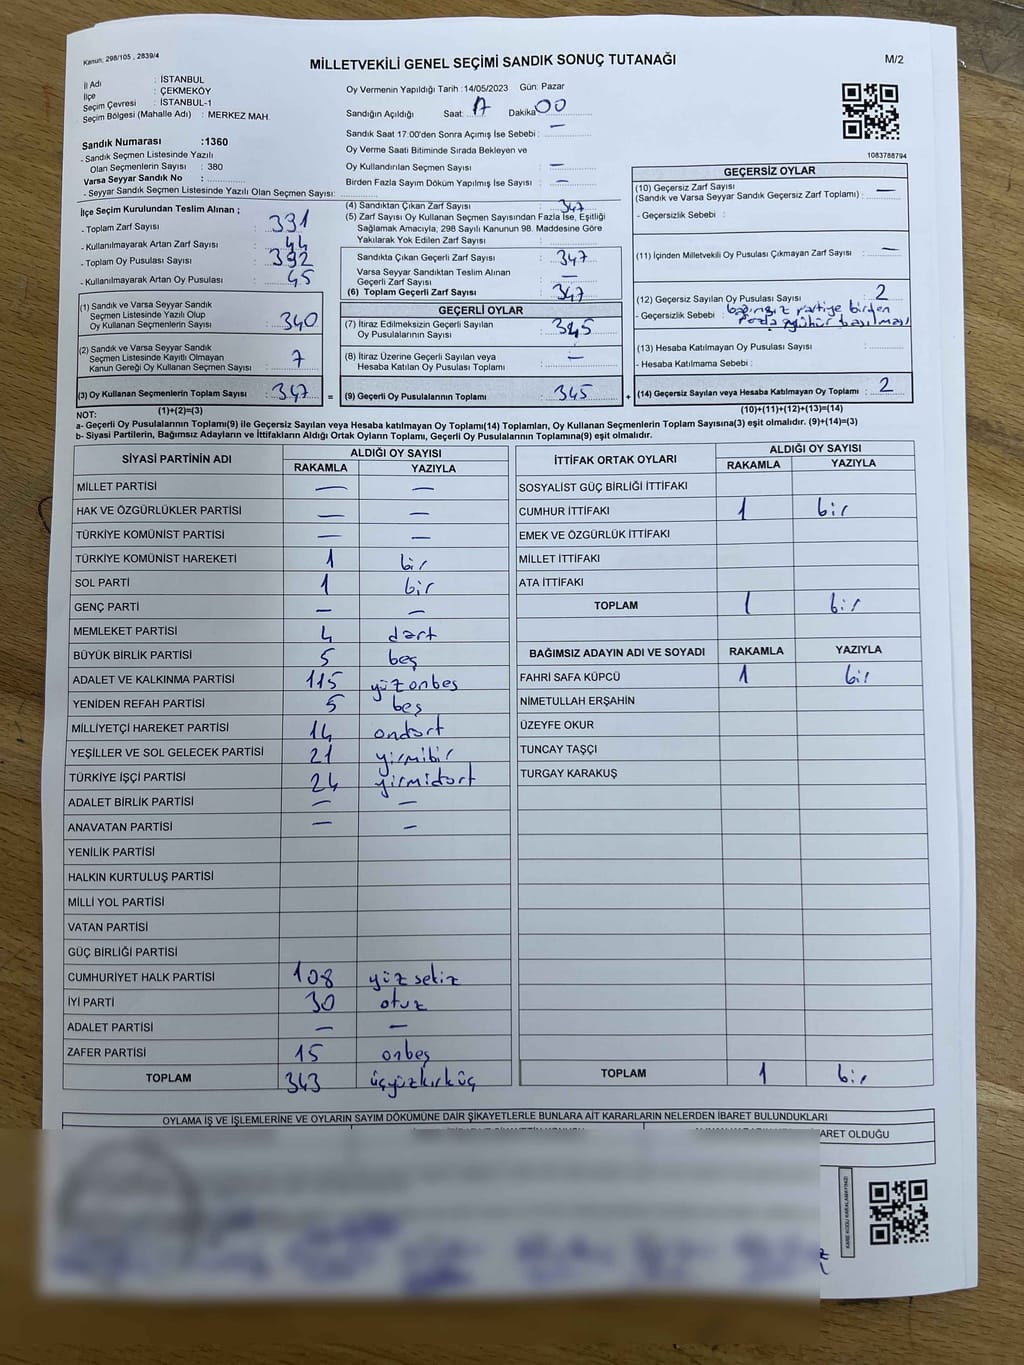 Kanun: 298/105 , 2839/4
MİLLETVEKİLİ GENEL SEÇİMİ SANDIK SONUÇ TUTANAĞI
M/2
İl Adı : İSTANBUL
İlçe : ÇEKMEKÖY
Seçim Çevresi : İSTANBUL-1
Seçim Bölgesi (Mahalle Adı) : MERKEZ MAH.
Sandık Numarası :1360
- Sandık Seçmen Listesinde Yazılı
Olan Seçmenlerin Sayısı : 380
Varsa Seyyar Sandık No :
- Seyyar Sandık Seçmen Listesinde Yazılı Olan Seçmen Sayısı:
Oy Vermenin Yapıldığı Tarih :14/05/2023 Gün: Pazar
Sandığın Açıldığı Saat: 17 Dakika 00
Sandık Saat 17:00'den Sonra Açımış İse Sebebi : —
Oy Verme Saati Bitiminde Sırada Bekleyen ve
Oy Kullandırılan Seçmen Sayısı : —
Birden Fazla Sayım Döküm Yapılmış İse Sayısı : —
1083788794
İlçe Seçim Kurulundan Teslim Alınan ;
- Toplam Zarf Sayısı : 391
- Kullanılmayarak Artan Zarf Sayısı : 44
- Toplam Oy Pusulası Sayısı : 392
- Kullanılmayarak Artan Oy Pusulası : 45
(1) Sandık ve Varsa Seyyar Sandık
Seçmen Listesinde Yazılı Olup
Oy Kullanan Seçmenlerin Sayısı : 340
(2) Sandık ve Varsa Seyyar Sandık
Seçmen Listesinde Kayıtlı Olmayan
Kanun Gereği Oy Kullanan Seçmen Sayısı : 7
(3) Oy Kullanan Seçmenlerin Toplam Sayısı : 347 =
(1)+(2)=(3)
(4) Sandıktan Çıkan Zarf Sayısı : 347
(5) Zarf Sayısı Oy Kullanan Seçmen Sayısından Fazla İse, Eşitliği
Sağlamak Amacıyla, 298 Sayılı Kanunun 98. Maddesine Göre
Yakılarak Yok Edilen Zarf Sayısı :
Sandıkta Çıkan Geçerli Zarf Sayısı : 347
Varsa Seyyar Sandıktan Teslim Alınan
Geçerli Zarf Sayısı : —
(6) Toplam Geçerli Zarf Sayısı : 347
GEÇERLİ OYLAR
(7) İtiraz Edilmeksizin Geçerli Sayılan
Oy Pusulalarının Sayısı : 345
(8) İtiraz Üzerine Geçerli Sayılan veya
Hesaba Katılan Oy Pusulası Toplamı : —
(9) Geçerli Oy Pusulalarının Toplamı : 345 +
GEÇERSİZ OYLAR
(10) Geçersiz Zarf Sayısı
(Sandık ve Varsa Seyyar Sandık Geçersiz Zarf Toplamı) : —
- Geçersizlik Sebebi :
(11) İçinden Milletvekili Oy Pusulası Çıkmayan Zarf Sayısı : —
(12) Geçersiz Sayılan Oy Pusulası Sayısı : 2
- Geçersizlik Sebebi : bağımsız partiye birden
fazla mühür basılması
(13) Hesaba Katılmayan Oy Pusulası Sayısı :
- Hesaba Katılmama Sebebi :
(14) Geçersiz Sayılan veya Hesaba Katılmayan Oy Toplamı : 2
(10)+(11)+(12)+(13)=(14)
NOT:
a- Geçerli Oy Pusulalarının Toplamı(9) ile Geçersiz Sayılan veya Hesaba katılmayan Oy Toplamı(14) Toplamları, Oy Kullanan Seçmenlerin Toplam Sayısına(3) eşit olmalıdır. (9)+(14)=(3)
b- Siyasi Partilerin, Bağımsız Adayların ve İttifakların Aldığı Ortak Oyların Toplamı, Geçerli Oy Pusulalarının Toplamına(9) eşit olmalıdır.
SİYASİ PARTİNİN ADI ALDIĞI OY SAYISI
RAKAMLA YAZIYLA
MİLLET PARTİSİ — —
HAK VE ÖZGÜRLÜKLER PARTİSİ — —
TÜRKİYE KOMÜNİST PARTİSİ — —
TÜRKİYE KOMÜNİST HAREKETİ 1 bir
SOL PARTİ 1 bir
GENÇ PARTİ — —
MEMLEKET PARTİSİ 4 dört
BÜYÜK BİRLİK PARTİSİ 5 beş
ADALET VE KALKINMA PARTİSİ 115 yüzonbeş
YENİDEN REFAH PARTİSİ 5 beş
MİLLİYETÇİ HAREKET PARTİSİ 14 ondört
YEŞİLLER VE SOL GELECEK PARTİSİ 21 yirmibir
TÜRKİYE İŞÇİ PARTİSİ 24 yirmidört
ADALET BİRLİK PARTİSİ — —
ANAVATAN PARTİSİ — —
YENİLİK PARTİSİ
HALKIN KURTULUŞ PARTİSİ
MİLLİ YOL PARTİSİ
VATAN PARTİSİ
GÜÇ BİRLİĞİ PARTİSİ
CUMHURİYET HALK PARTİSİ 108 yüzsekiz
İYİ PARTİ 30 otuz
ADALET PARTİSİ — —
ZAFER PARTİSİ 15 onbeş
TOPLAM 343 üçyüzkırküç
İTTİFAK ORTAK OYLARI ALDIĞI OY SAYISI
RAKAMLA YAZIYLA
SOSYALİST GÜÇ BİRLİĞİ İTTİFAKI
CUMHUR İTTİFAKI 1 bir
EMEK VE ÖZGÜRLÜK İTTİFAKI
MİLLET İTTİFAKI
ATA İTTİFAKI
TOPLAM 1 bir
BAĞIMSIZ ADAYIN ADI VE SOYADI RAKAMLA YAZIYLA
FAHRİ SAFA KÜPCÜ 1 bir
NİMETULLAH ERŞAHİN
ÜZEYFE OKUR
TUNCAY TAŞÇI
TURGAY KARAKUŞ
TOPLAM 1 bir
OYLAMA İŞ VE İŞLEMLERİNE VE OYLARIN SAYIM DÖKÜMÜNE DAİR ŞİKAYETLERLE BUNLARA AİT KARARLARIN NELERDEN İBARET BULUNDUKLARI
ARET OLDUĞU
KARE KODU KARALAMAYINIZ!